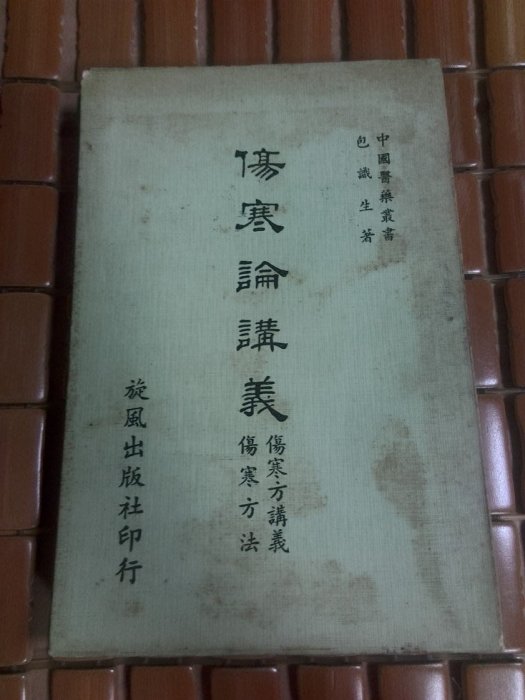 中國醫藥叢書
包識生著
傷寒論講義
傷寒方講義
傷寒方法
旋風出版社印行